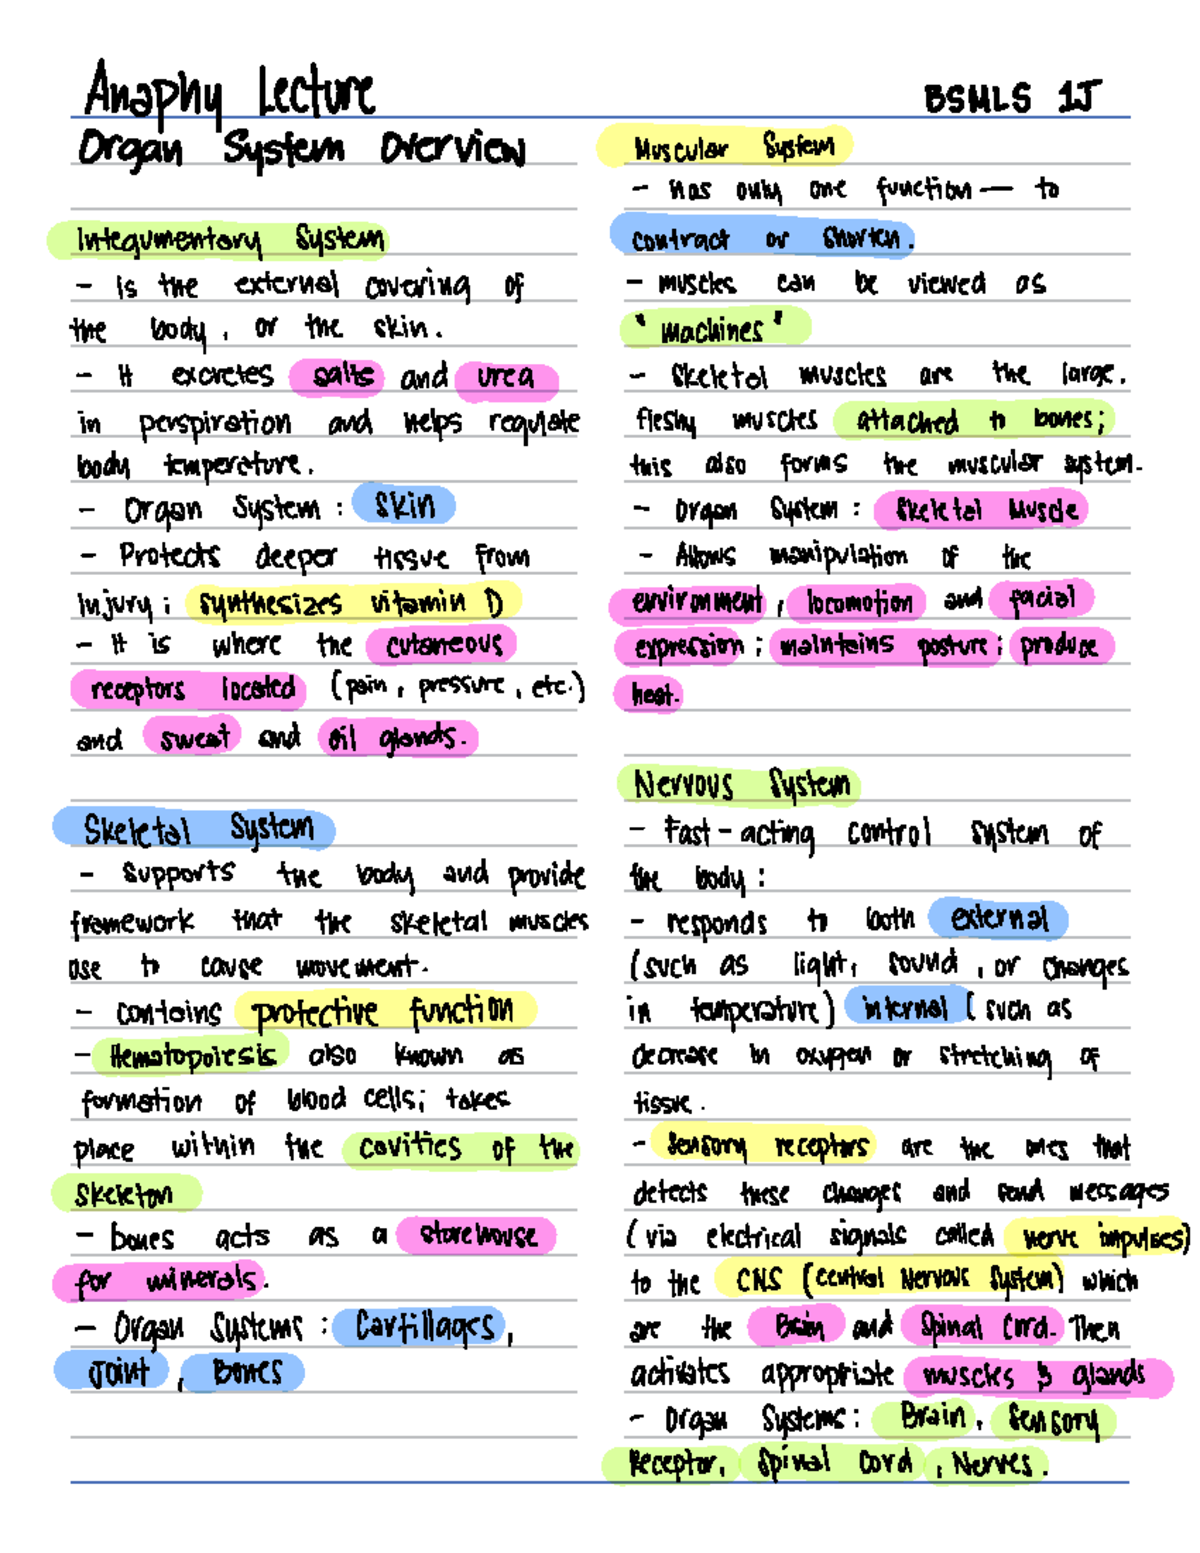 Anaphy Lecture
BSMLS 1J
Organ System Overview
Integumentory System
- is the external covering of
the body, or the skin.
- It excretes salts and urea
in perspiration and helps regulate
body temperature.
- Organ System: Skin
- Protects deeper tissue from
injury; synthesizes vitamin D
- It is where the cutaneous
receptors located (pain, pressure, etc.)
and sweat and oil glands.
Skeletal System
- Supports the body and provide
framework that the skeletal muscles
use to cause movement.
- contains protective function
- Hematopoiesis also known as
formation of blood cells; takes
place within the cavities of the
skeleton
- bones acts as a storehouse
for minerals.
- Organ Systems: Cartillages,
Joint, Bones
Muscular System
- has only one function — to
contract or shorten.
- muscles can be viewed as
"machines"
- Skeletal muscles are the large,
fleshy muscles attached to bones;
this also forms the muscular system.
- Organ System: Skeletal Muscle
- Allows manipulation of the
environment, locomotion and facial
expression; maintains posture; produce
heat.
Nervous System
- Fast-acting control system of
the body:
- responds to both external
(such as light, sound, or changes
in temperature) internal (such as
decrease in oxygen or stretching of
tissue.
- Sensory receptors are the ones that
detects these changes and send messages
(via electrical signals called nerve impulses)
to the CNS (central Nervous System) which
are the Brain and Spinal Cord. Then
activates appropriate muscles & glands
- Organ Systems: Brain, Sensory
Receptor, Spinal Cord, Nerves.